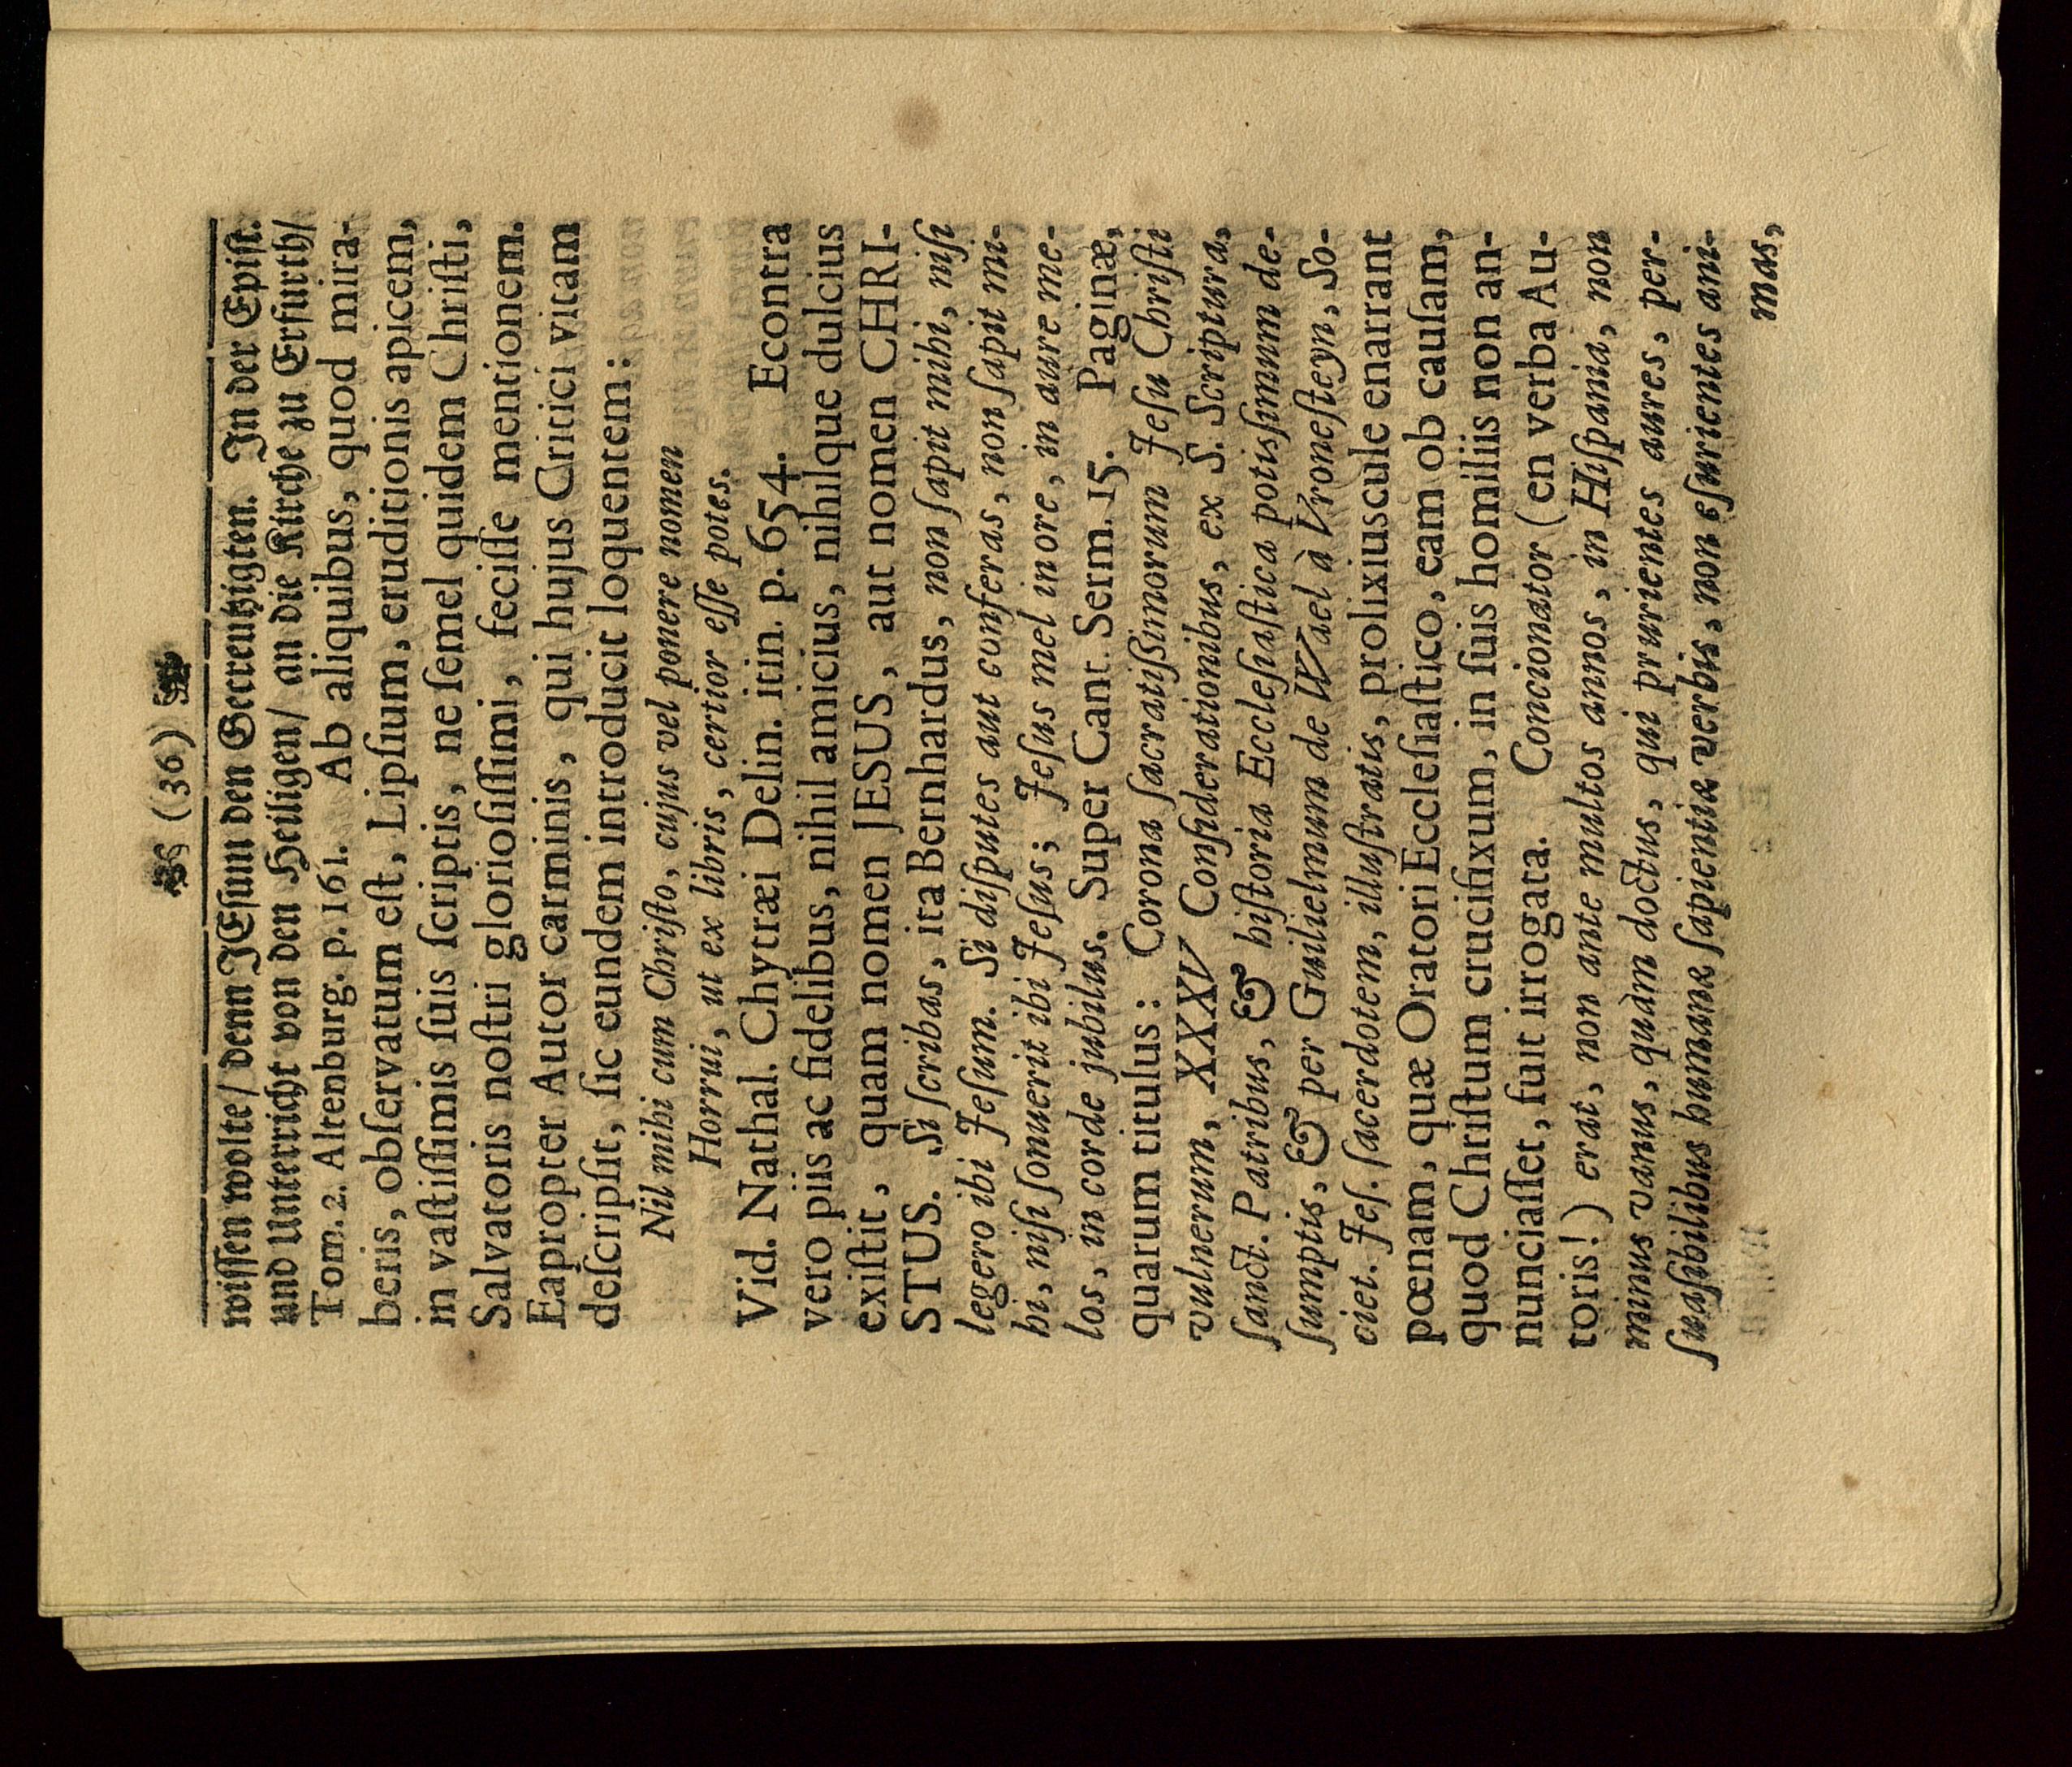 (36)
wiſſen wolte/ denn JEſum den Gecreutzigten. In der Epiſt.
und Unterricht von den Heiligen/ an die Kirche zu Erfurth/
Tom. 2. Altenburg. p. 161. Ab aliquibus, quod mira-
beris, obſervatum eſt, Lipſium, eruditionis apicem,
in vaſtiſſimis ſuis ſcriptis, ne ſemel quidem Chriſti,
Salvatoris noſtri glorioſiſſimi, feciſſe mentionem.
Eapropter Autor carminis, qui hujus Critici vitam
deſcripſit, ſic eundem introducit loquentem:
Nil mihi cum Chriſto, cujus vel ponere nomen
Horrui, ut ex libris, certior eſſe potes.
Vid. Nathal. Chytræi Delin. itin. p. 654. Econtra
vero piis ac fidelibus, nihil amicius, nihilque dulcius
exiſtit, quam nomen JESUS, aut nomen CHRI-
STUS. Si ſcribas, ita Bernhardus, non ſapit mihi, niſi
legero ibi Jeſum. Si diſputes aut conferas, non ſapit mi-
hi, niſi ſonuerit ibi Jeſus; Jeſus mel in ore, in aure me-
los, in corde jubilus. Super Cant. Serm. 15. Paginæ,
quarum titulus: Corona ſacratiſſimorum Jeſu Chriſti
vulnerum, XXXV Conſiderationibus, ex S. Scriptura,
ſanct. Patribus, & hiſtoria Eccleſiaſtica potisſimum de-
ſumptis, & per Guilielmum de Wael à Vroneſteyn, So-
ciet. Jeſ. ſacerdotem, illuſtratis, prolixiuscule enarrant
pœnam, quæ Oratori Eccleſiaſtico, eam ob cauſam,
quod Chriſtum crucifixum, in ſuis homiliis non an-
nunciaſſet, fuit irrogata. Concionator (en verba Au-
toris!) erat, non ante multos annos, in Hiſpania, non
minus vanus, quàm doctus, qui prurientes aures, per-
ſuaſibilibus humanæ ſapientiæ verbis, non eſurientes ani-
mas,